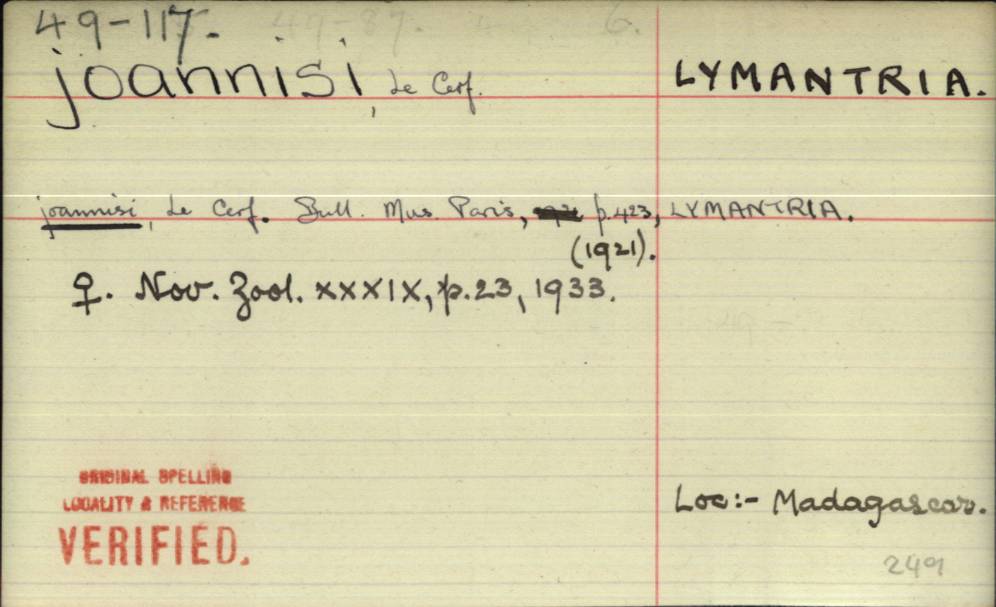 49-117.
joannisi, Le Cerf. LYMANTRIA.
joannisi, Le Cerf. Bull. Mus. Paris, p.423, LYMANTRIA.
(1921).
♀. Nov. Zool. XXXIX, p.23, 1933.
ORIGINAL SPELLING
LOCALITY & REFERENCE
VERIFIED.
Loc:- Madagascar.
249